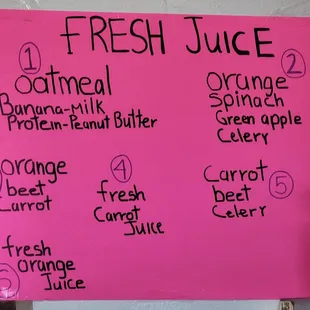 FRESH JUICE
1
oatmeal
Banana-Milk
Protein-Peanut Butter
2
orange
Spinach
Green apple
Celery
orange
beet
Carrot
4
fresh
Carrot
Juice
Carrot
beet
Celery
5
fresh
orange
Juice